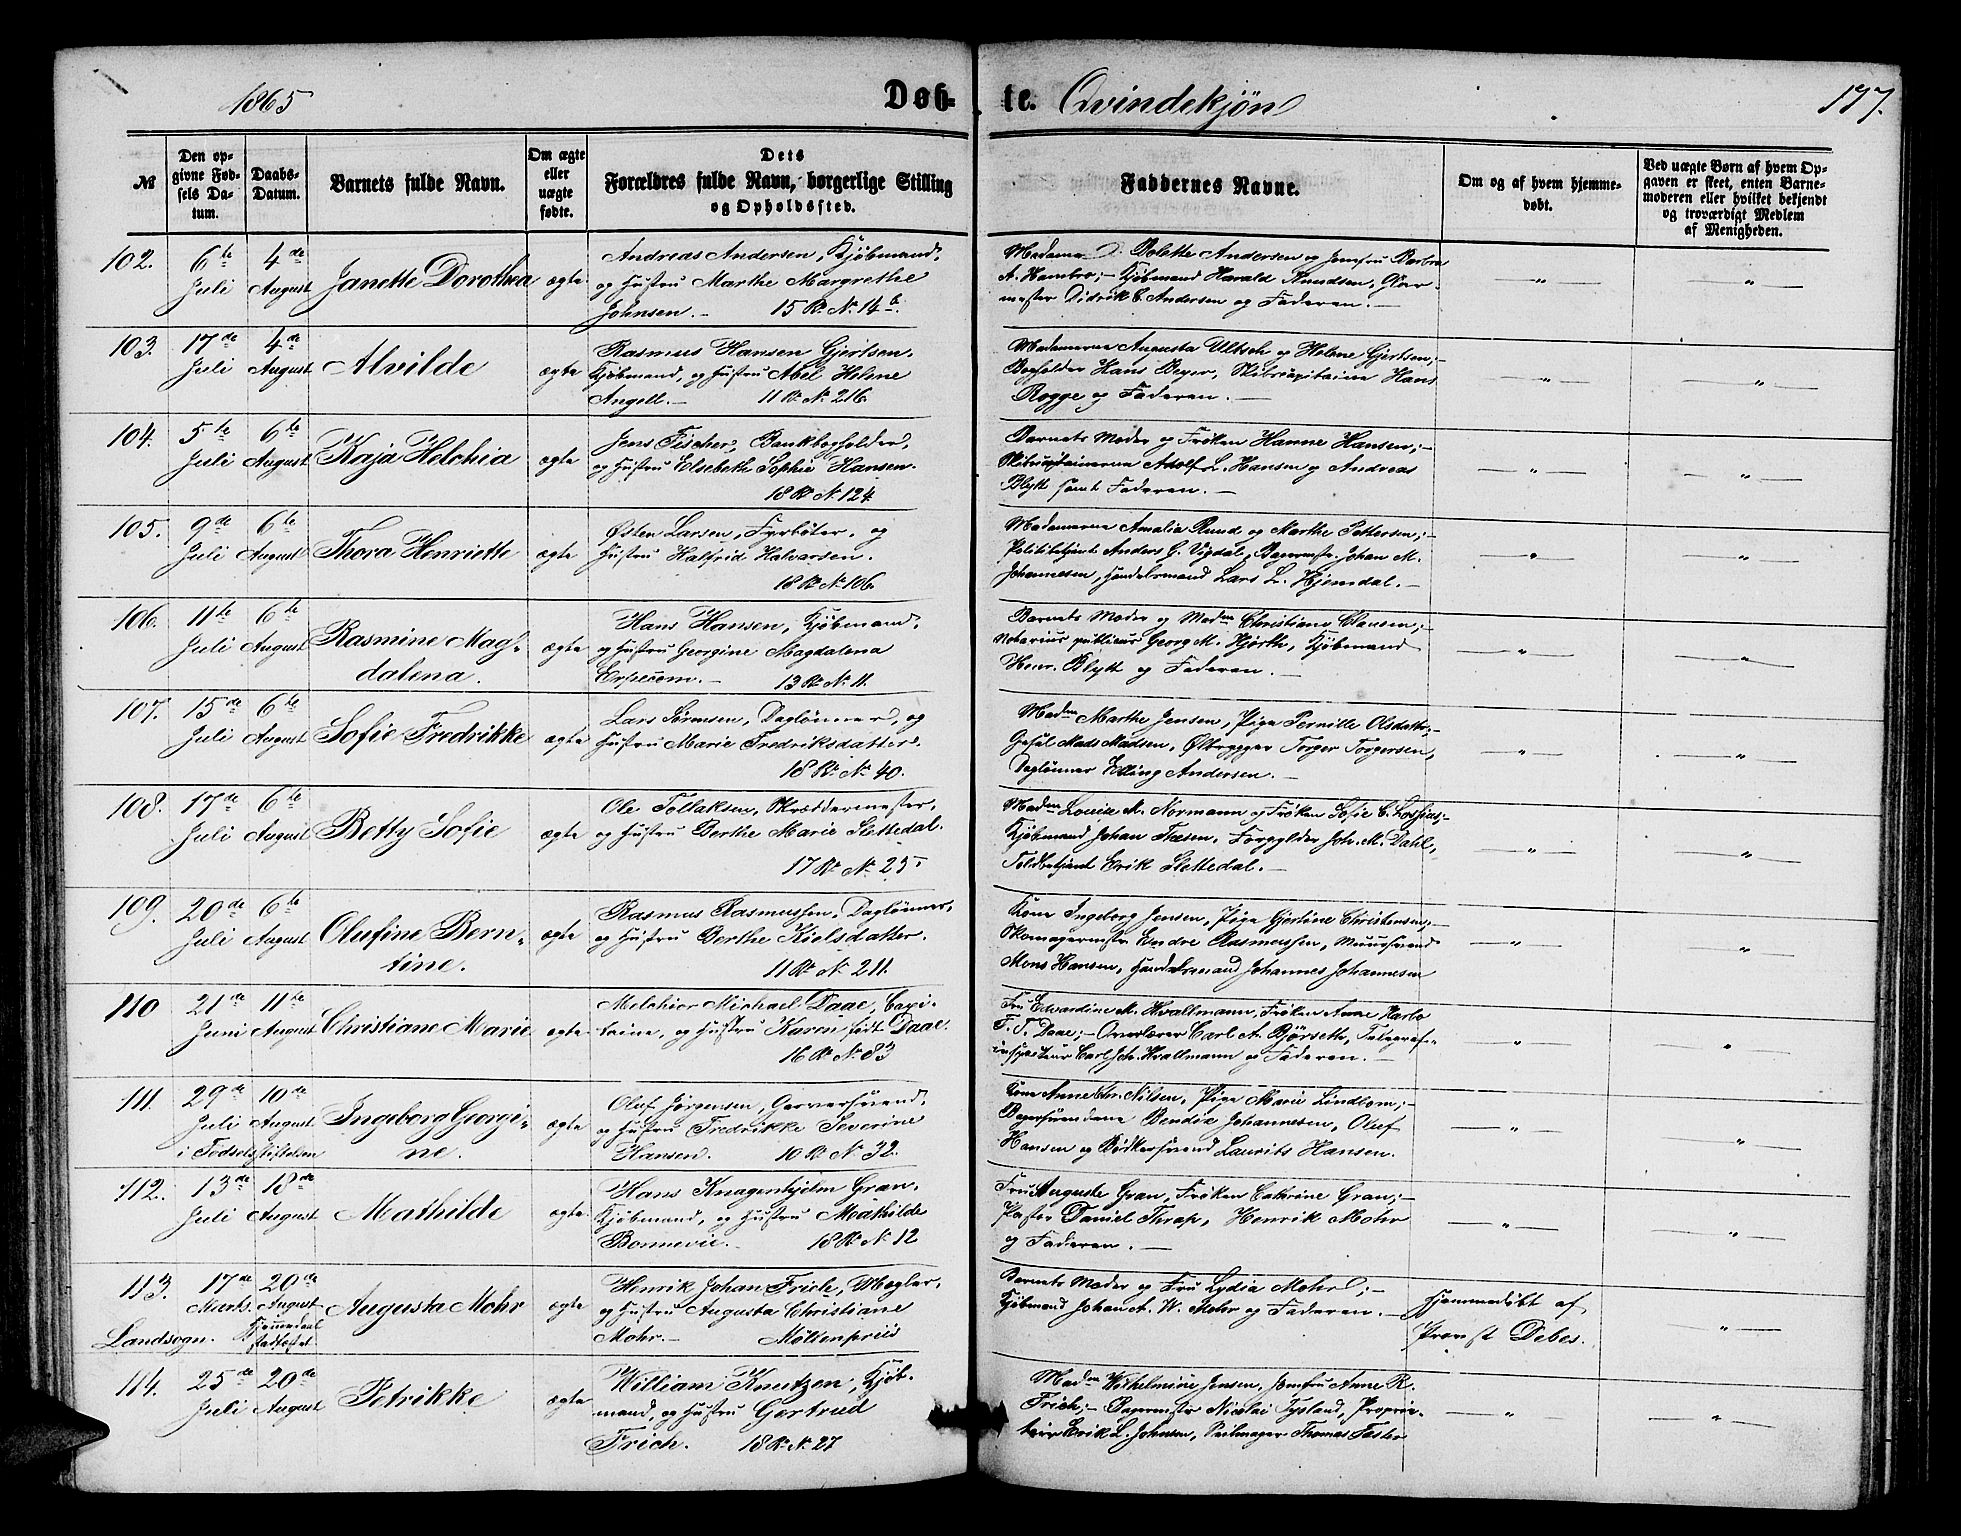 1865
Døb-
te.
Qvindekjøn
177.
№
Den op-
givne Fød-
sels Da-
tum.
Daabs-
Datum.
Barnets fulde Navn.
Om ægte
eller
uægte
fødte.
Dets
Forældres fulde Navn, borgerlige Stilling
og Opholdssted.
Faddernes Navne.
Om og af hvem hjemme-
døbt.
Ved uægte Børn af hvem Op-
gaven er skeet, enten Barne-
moderen eller hvilket bekjendt
og troværdigt Medlem
af Menigheden.
102. 6te Juli 4de August Janette Dorothea ægte
Andreas Andersen, Kjøbmand,
og Hustru Marthe Margrethe
Johnsen. – 15 R. N. 14b.
Madame D. Bolette Andersen og Jomfru Barbra
A. Hambro; – Kjøbmand Harald Knudsen, Gar-
mester Didrik C. Andersen og Faderen. –
103. 17de Juli 4de August Alvilde ægte
Rasmus Hansen Gjertsen,
Kjøbmand, og Hustru Abel Helene
Angell. – 11 R. N. 216.
Madamerne Augusta Ultsch og Helene Gjertsen; –
Bogholder Hans Beyer, Skibscapitaine Hans
Rogge og Faderen. –
104. 5te Juli 6te August Kaja Helchia ægte
Jens Fischer, Bankbogholder,
og Hustru Elsebeth Sophie Hansen.
18 R. N. 124.
Barnets Moder og Frøken Hanne Hansen; –
Skibscapitainerne Adolf L. Hansen og Andreas
Blytt samt Faderen. –
105. 9de Juli 6te August Thora Henriette ægte
Østen Larsen, Fyrbøter, og
Hustru Halfrid Halvorsen.
18 R. N. 106.
Madamerne Amalia Rund og Marthe Pettersen; –
Politibetjent Anders G. Vigdal, Bagermstr. Johan M.
Johannesen, Handelsmand Lars L. Hjemdal. –
106. 11te Juli 6te August Rasmine Mag-
dalena. ægte
Hans Hansen, Kjøbmand,
og Hustru Georgine Magdalena
Erpecom. – 13 R. N. 11.
Barnets Moder og Madm Christiane Clausen; –
Notarius publicus Georg M. Hjorth, Kjøbmand
Henr. Blytt og Faderen. –
107. 15de Juli 6te August Sofie Fredrikke ægte
Lars Sørensen, Dagl��nner, og
Hustru Marie Fredriksdatter.
18 R. N. 40.
Madm Marthe Jensen, Pige Pernille Olsdatter; –
Gesel Mads Madsen, Ølbrygger Torger Torgersen,
Daglønner Elling Andersen. –
108. 17de Juli 6te August Betty Sofie ægte
Ole Tollaksen, Skræddermester,
og Hustru Berthe Marie Slettedal.
17 R. N. 25.
Madm Lovise M. Normann og Frøken Sofie C. Lossius; –
Kjøbmand Johan Næsen, Forgylder Joh. M. Dahl,
Toldbetjent Erik Slettedal. –
109. 20de Juli 6te August Olufine Bern-
tine. ægte
Rasmus Rasmussen, Daglønner,
og Hustru Berthe Kielsdatter.
11 R. N. 211.
Kone Ingeborg Jensen, Pige Gjertine Christensen; –
Skomagermstr. Endre Rasmussen, Muursvend
Mons Hansen, Handelsmand Johannes Johannesen
110 21de Juni 11te August Christiane Marie ægte
Melchior Michael Daae, Capi-
taine, og Hustru Karen født Daae.
16 R. N. 83
Fru Edvardine M. Kvallmann, Frøken Anne Harbo
F. T. Daae; – Overlærer Carl A. Bjørseth, Telegraf-
inspecteur Carl Joh. Kvallmann og Faderen. –
111. 29de Juli 10de August Ingeborg Georgi-
ne. ægte
i Fødselsstiftelsen
Oluf Jørgensen, Garversvend,
og Hustru Fredrikke Severine
Hansen. 10 R. N. 32.
Kone Anne Chr. Nilsen, Pige Marie Lindbom; –
Bagersvendene Bendix Johannesen, Oluf
Hansen og Bødkersvend Laurits Hansen.
112. 13de Juli 18de August Mathilde ægte
Hans Knagenhjelm Gran,
Kjøbmand, og Hustru Mathilde
Bonnevie. – 18 R. N. 12
Fru Auguste Gran, Frøken Cathrine Gran; –
Pastor Daniel Thrap, Henrik Mohr
og Faderen. –
113. 17de Marts. 20de August Augusta Mohr ægte
Landsogn.
Hjemmedaab
stadfæstet.
Henrik Johan Frich, Mægler,
og Hustru Augusta Christiane
Mohr. – Møllenpriis
Barnets Moder og Fru Lydia Mohr; –
Kjøbmand Johan A. W. Mohr og Faderen. –
Hjemmedøbt af
Provst Debes.
114. 25de Juli 20de August Petrikke ægte
William Knutzen, Kjøb-
mand, og Hustru Gertrud
Frich. 18 R. N. 27
Madm Wilhelmine Jensen, Jomfru Anne R.
Frich; – Bagermstr. Nicolai Tysland, Proprie-
tair Erik L. Johnsen, Seilmager Thomas Faster